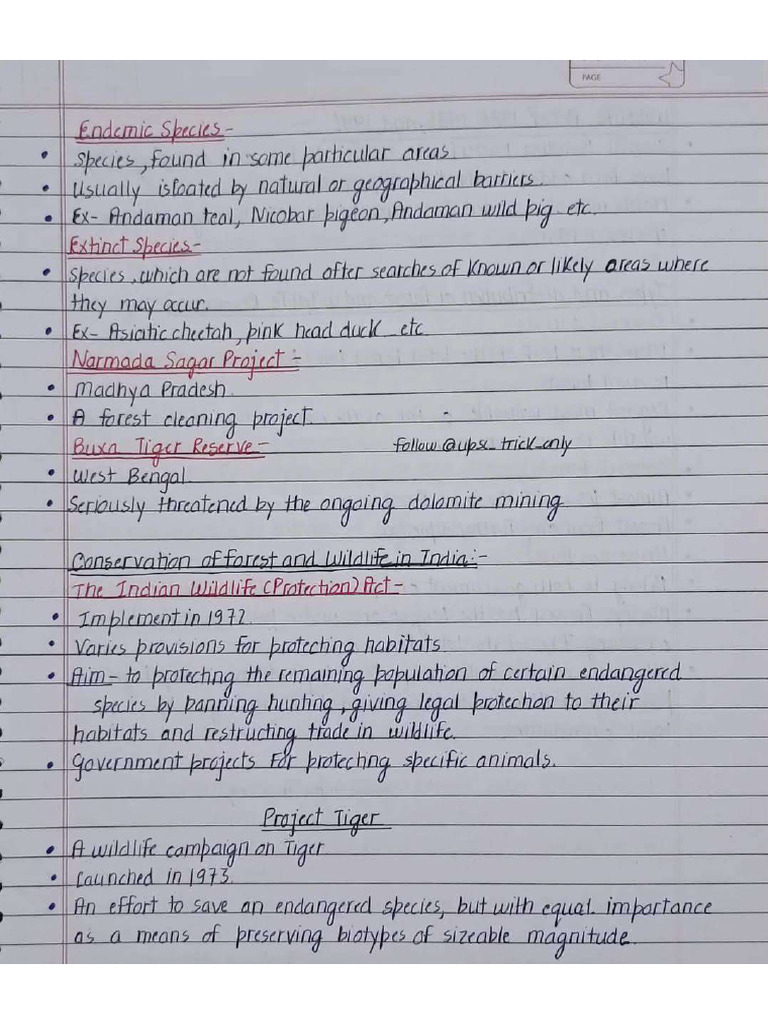 PAGE
Endemic Species-
• Species, found in some particular areas
• Usually isloated by natural or geographical barriers.
• Ex- Andaman teal, Nicobar pigeon, Andaman wild pig etc.
Extinct Species-
• Species, which are not found after searches of known or likely areas where
they may occur.
• Ex- Asiatic cheetah, pink head duck etc
Narmada Sagar Project :-
• Madhya Pradesh.
• A forest cleaning project.
Buxa Tiger Reserve- follow @upsc_trick_only
• West Bengal.
• Seriously threatened by the ongoing dolomite mining
Conservation of forest and Wildlife in India:-
The Indian Wildlife (Protection) Act-
• Implement in 1972.
• Varies provisions for protecting habitats
• Aim- to protecting the remaining population of certain endangered
species by panning hunting, giving legal protection to their
habitats and restructing trade in wildlife.
• Government projects for protecting specific animals.
Project Tiger
• A wildlife campaign on Tiger
• Launched in 1973.
• An effort to save an endangered species, but with equal importance
as a means of preserving biotypes of sizeable magnitude.